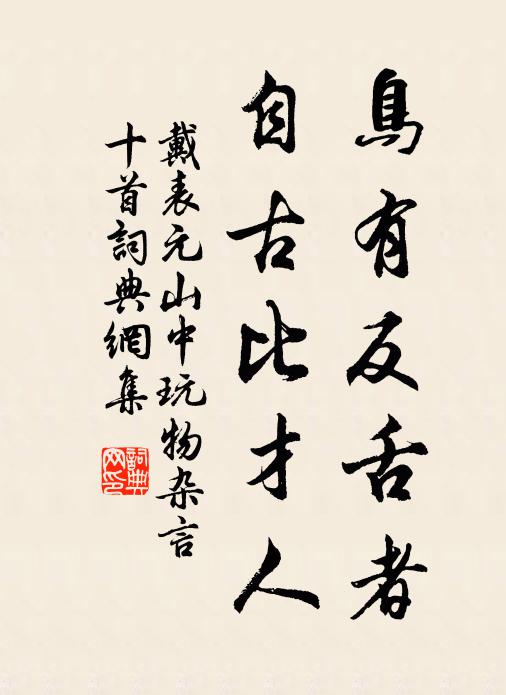 鳥有反舌者
自古比才人
戴表元山中玩物杂言
十首詞典網集
詞典
网印